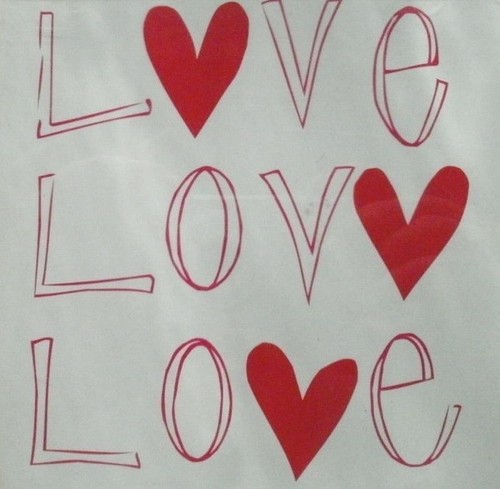 L♥Ve
LOV♥
LO♥e